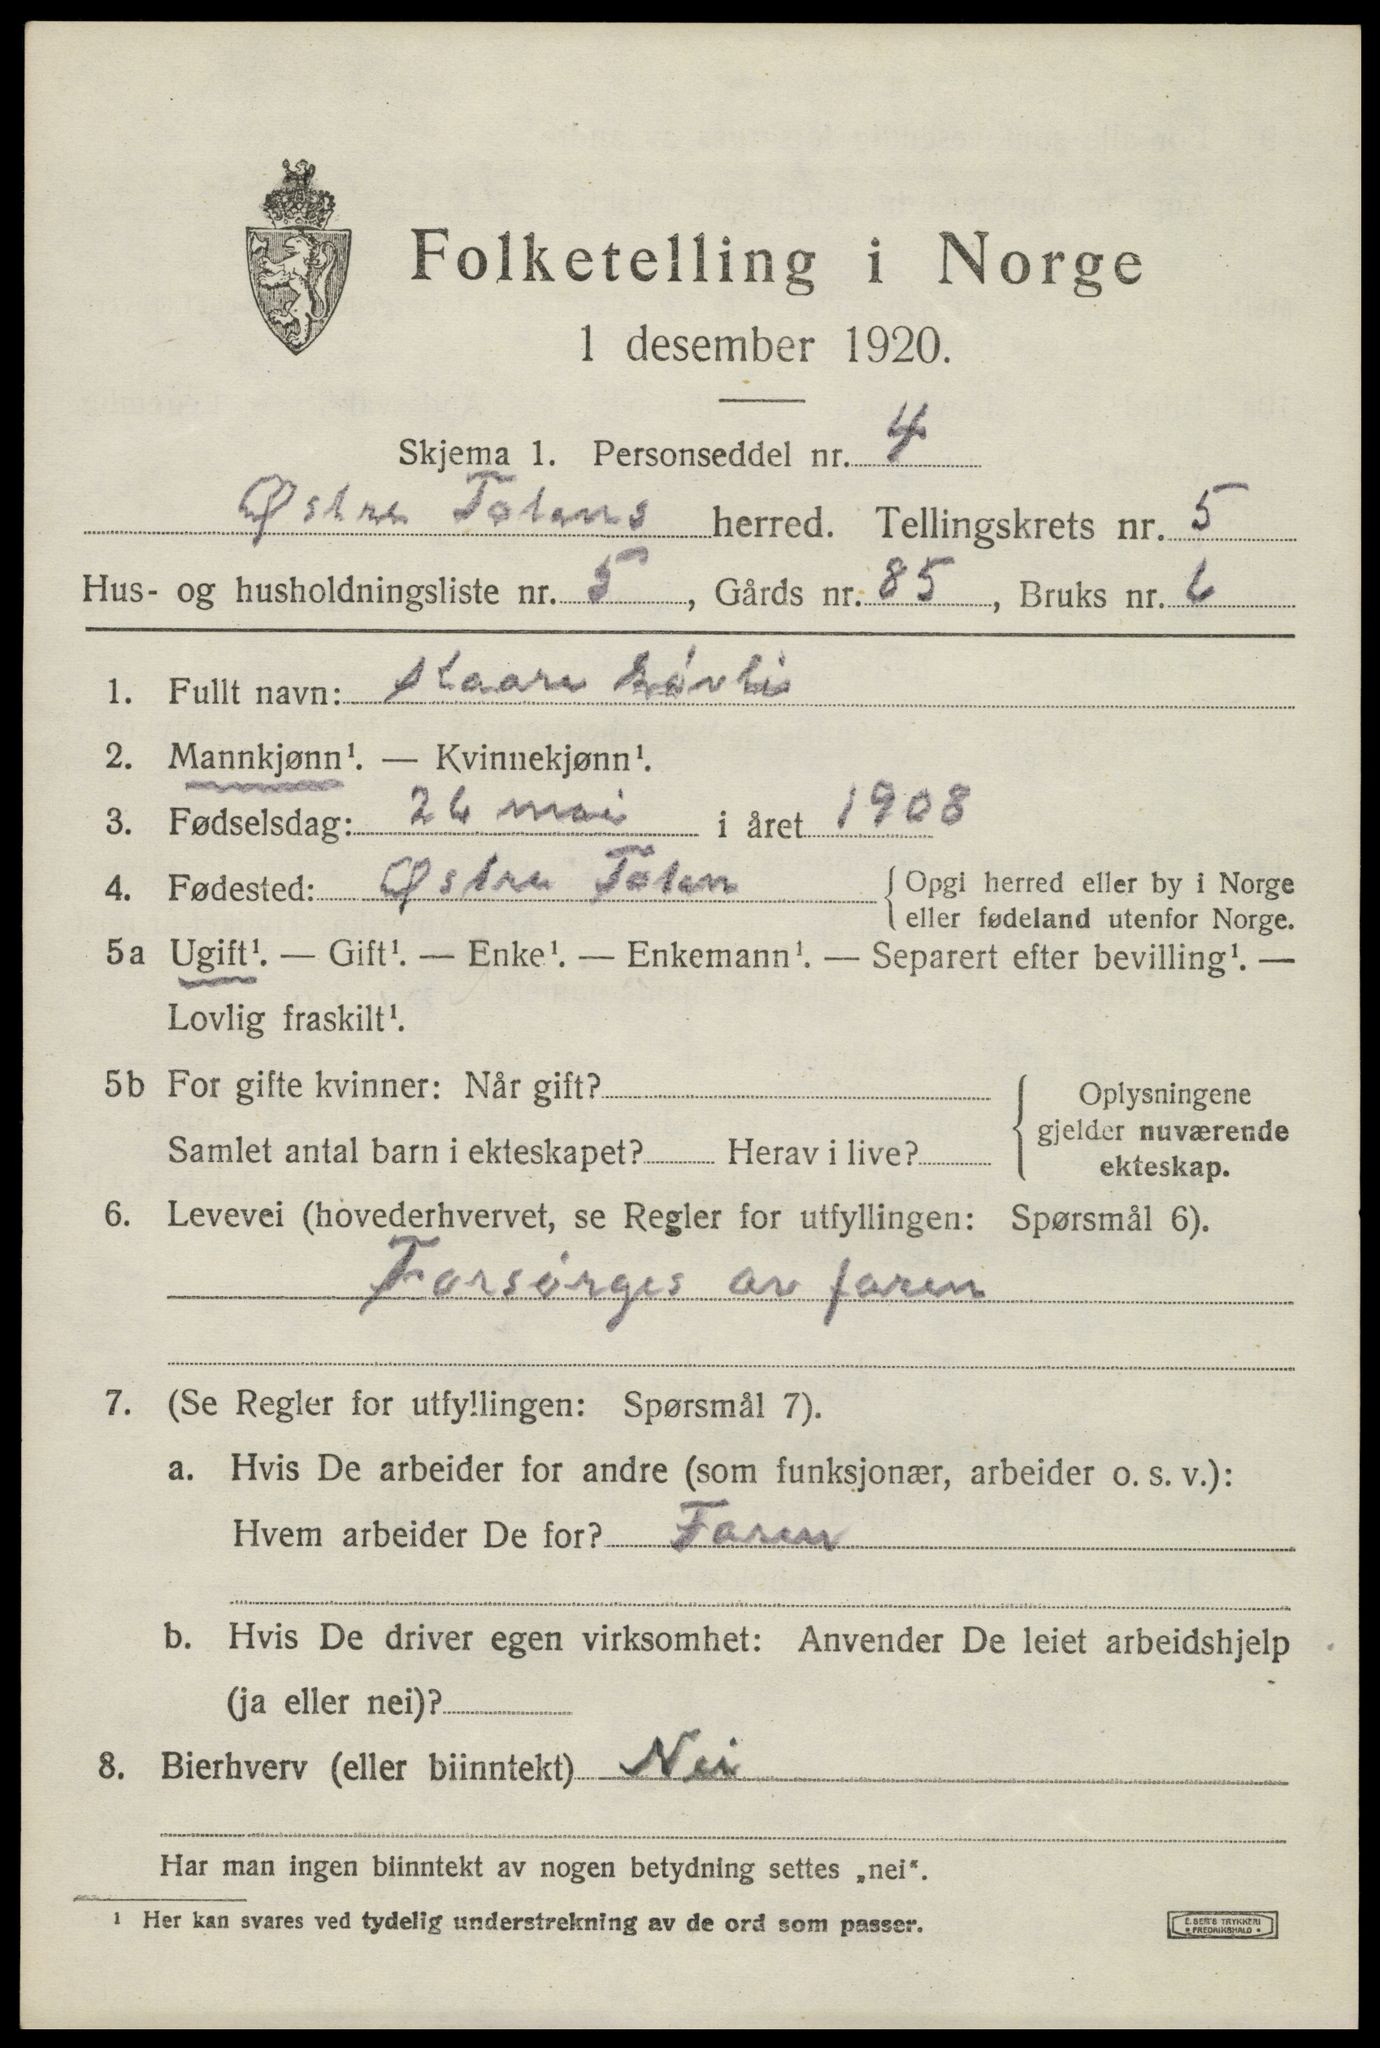 Folketelling i Norge
1 desember 1920.
Skjema 1. Personseddel nr. 4
Østre Totens herred. Tellingskrets nr. 5
Hus- og husholdningsliste nr. 5, Gårds nr. 85, Bruks nr. 6
1. Fullt navn: Kaare
2. Mannkjønn¹. — Kvinnekjønn¹.
3. Fødselsdag: 26 mai i året 1908
4. Fødested: Østre Toten {Opgi herred eller by i Norge
eller fødeland utenfor Norge.
5a Ugift¹. — Gift¹. — Enke¹. — Enkemann¹. — Separert efter bevilling¹. —
Lovlig fraskilt¹.
5b For gifte kvinner: Når gift?
Samlet antal barn i ekteskapet? Herav i live?
{Oplysningene
gjelder nuværende
ekteskap.
6. Levevei (hovederhvervet, se Regler for utfyllingen: Spørsmål 6).
Forsørges av faren
7. (Se Regler for utfyllingen: Spørsmål 7).
a. Hvis De arbeider for andre (som funksjonær, arbeider o. s. v.):
Hvem arbeider De for? Faren
b. Hvis De driver egen virksomhet: Anvender De leiet arbeidshjelp
(ja eller nei)?
8. Bierhverv (eller biinntekt) Nei
Har man ingen biinntekt av nogen betydning settes „nei".
¹ Her kan svares ved tydelig understrekning av de ord som passer.
E. SEM'S TRYKKERI
FREDRIKSHALD